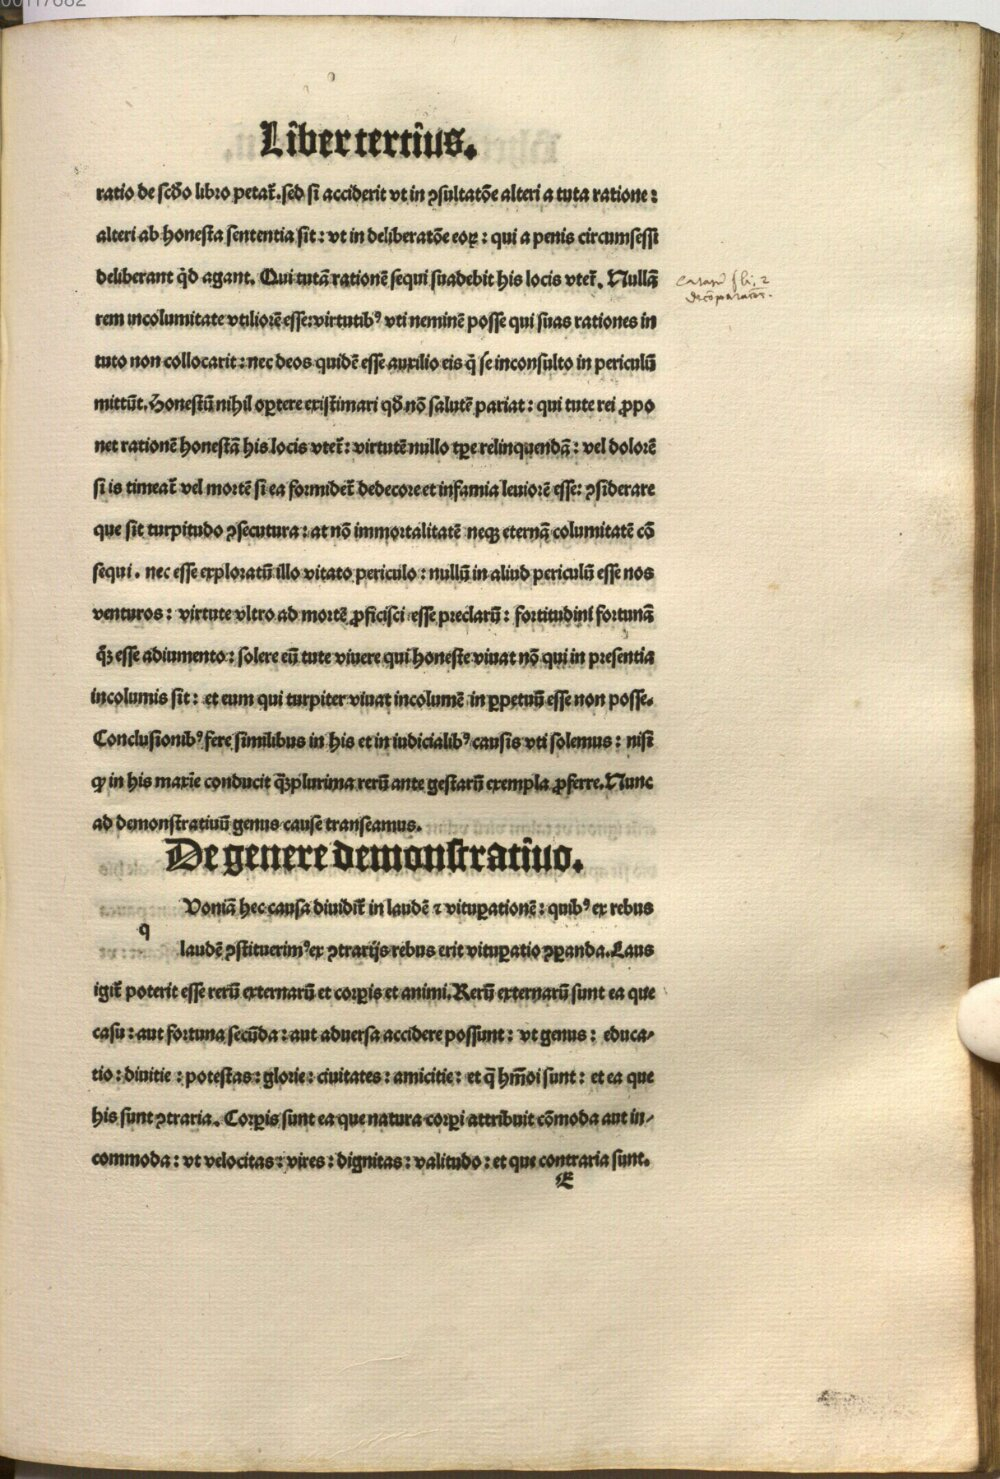 Liber tertius.
ratio de scd̄o libro petat̄. sed si acciderit vt in ꝯsultatōe alteri a tuta ratione :
alteri ab honesta sententia sit : vt in deliberatōe eoꝝ : qui a penis circumsessi
deliberant qd̄ agant. Qui tutā rationē sequi suadebit his locis vtet̄. Nullā
rem incolumitate vtiliorē esse: virtutibꝰ vti neminē posse qui suas rationes in
tuto non collocarit : nec deos quidē esse auxilio eis q̄ se inconsulto in periculū
mittūt. Honestū nihil oꝑtere existimari qd̄ nō salutē pariat : qui tute rei ꝓpo
net rationē honestā his locis vtet̄ : virtutē nullo tꝑe relinquendā : vel dolorē
si is timeat̄ vel mortē si ea formidet̄ dedecore et infamia leuiorē esse: ꝯsiderare
que sit turpitudo ꝯsecutura : at nō immortalitatē neqꝫ eternā columitatē cō
sequi . nec esse exploratū illo vitato periculo : nullū in aliud periculū esse nos
venturos : virtute vltro ad mortē ꝓficisci esse preclarū : fortitudini fortunā
qꝫ̄ esse adiumento : solere eū tute viuere qui honeste viuat nō qui in presentia
incolumis sit : et eum qui turpiter viuat incolumē in ꝑpetuū esse non posse.
Conclusionibꝰ fere similibus in his et in iudicialibꝰ causis vti solemus : nisi
ꝙ in his maxīe conducit qꝫ̄plurima rerū ante gestarū exempla ꝓferre. Nunc
ad demonstratiuū genus cause transeamus.
De genere demonstratiuo.
Voniā hec causa diuidit̄ in laudē ⁊ vituꝑationē : quibꝰ ex rebus
q
laudē ꝯstituerimꝰ ex ꝯtrarijs rebus erit vituꝑatio ꝯꝑanda. Laus
igit̄ poterit esse rerū externarū et corꝑis et animi. Rerū externarū sunt ea que
casu : aut fortuna secūda : aut aduersa accidere possunt : vt genus : educa-
tio : diuitie : potestas : glorie : ciuitates : amicitie : et q̄ hm̄oi sunt : et ea que
his sunt ꝯtraria. Corꝑis sunt ea que natura corꝑi attribuit cōmoda aut in-
commoda : vt velocitas : vires : dignitas : valitudo : et que contraria sunt.
E